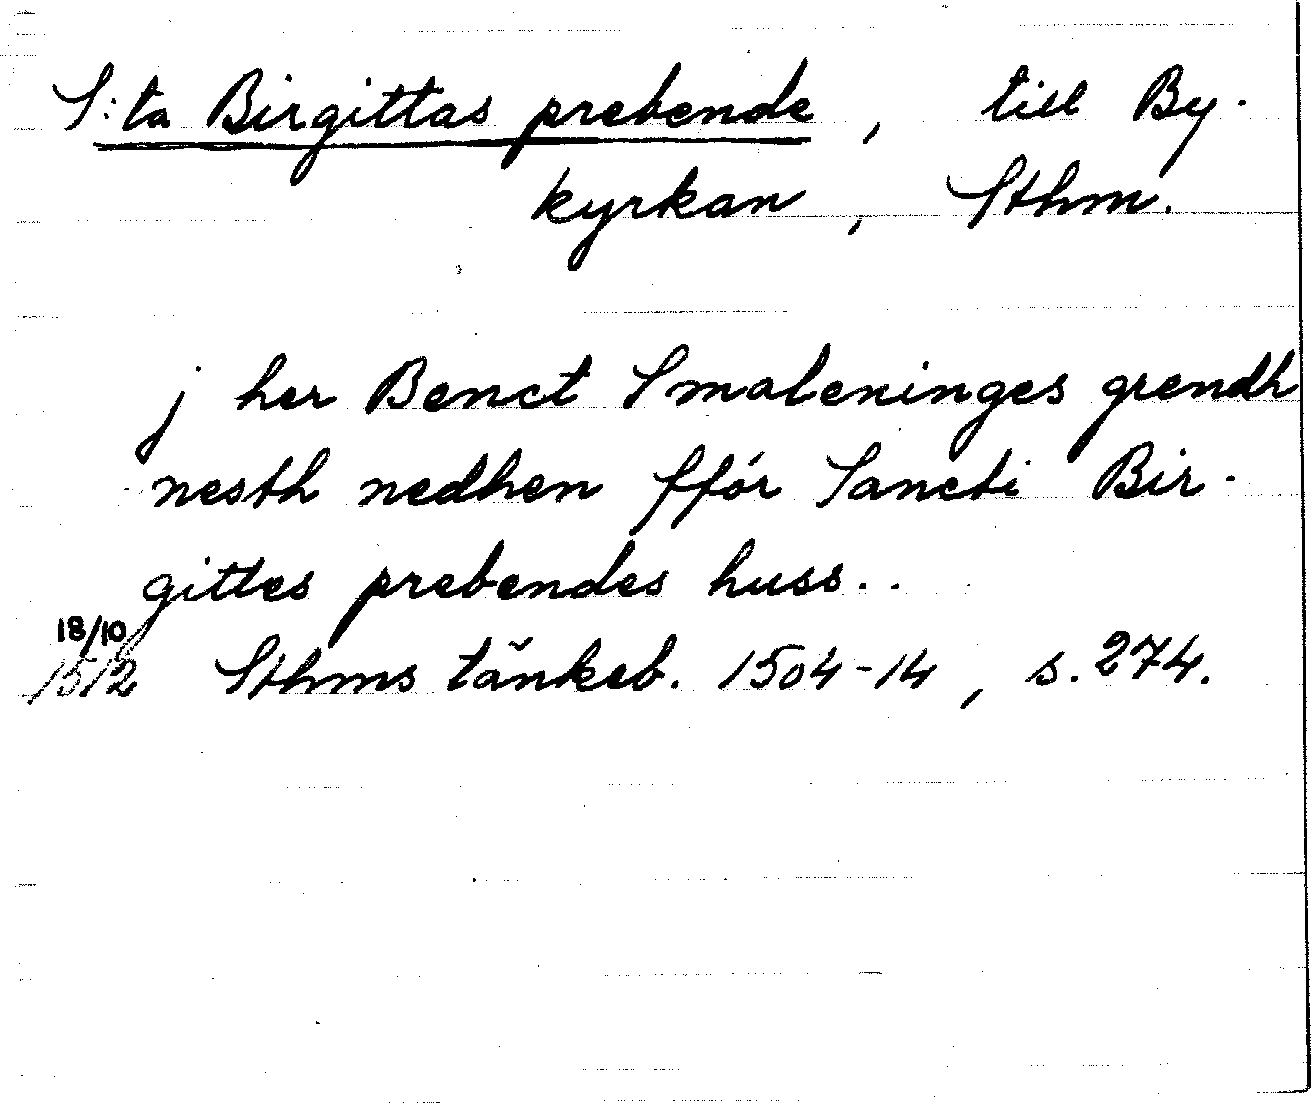 S:ta Birgittas prebende, till By-
kyrkan, Sthm.
j her Benct Smaleninges grendh
nesth nedhen fför Sancti Bir-
gittes prebendes huss..
18/10
1512 Sthms tänkeb. 1504-14, s. 274.